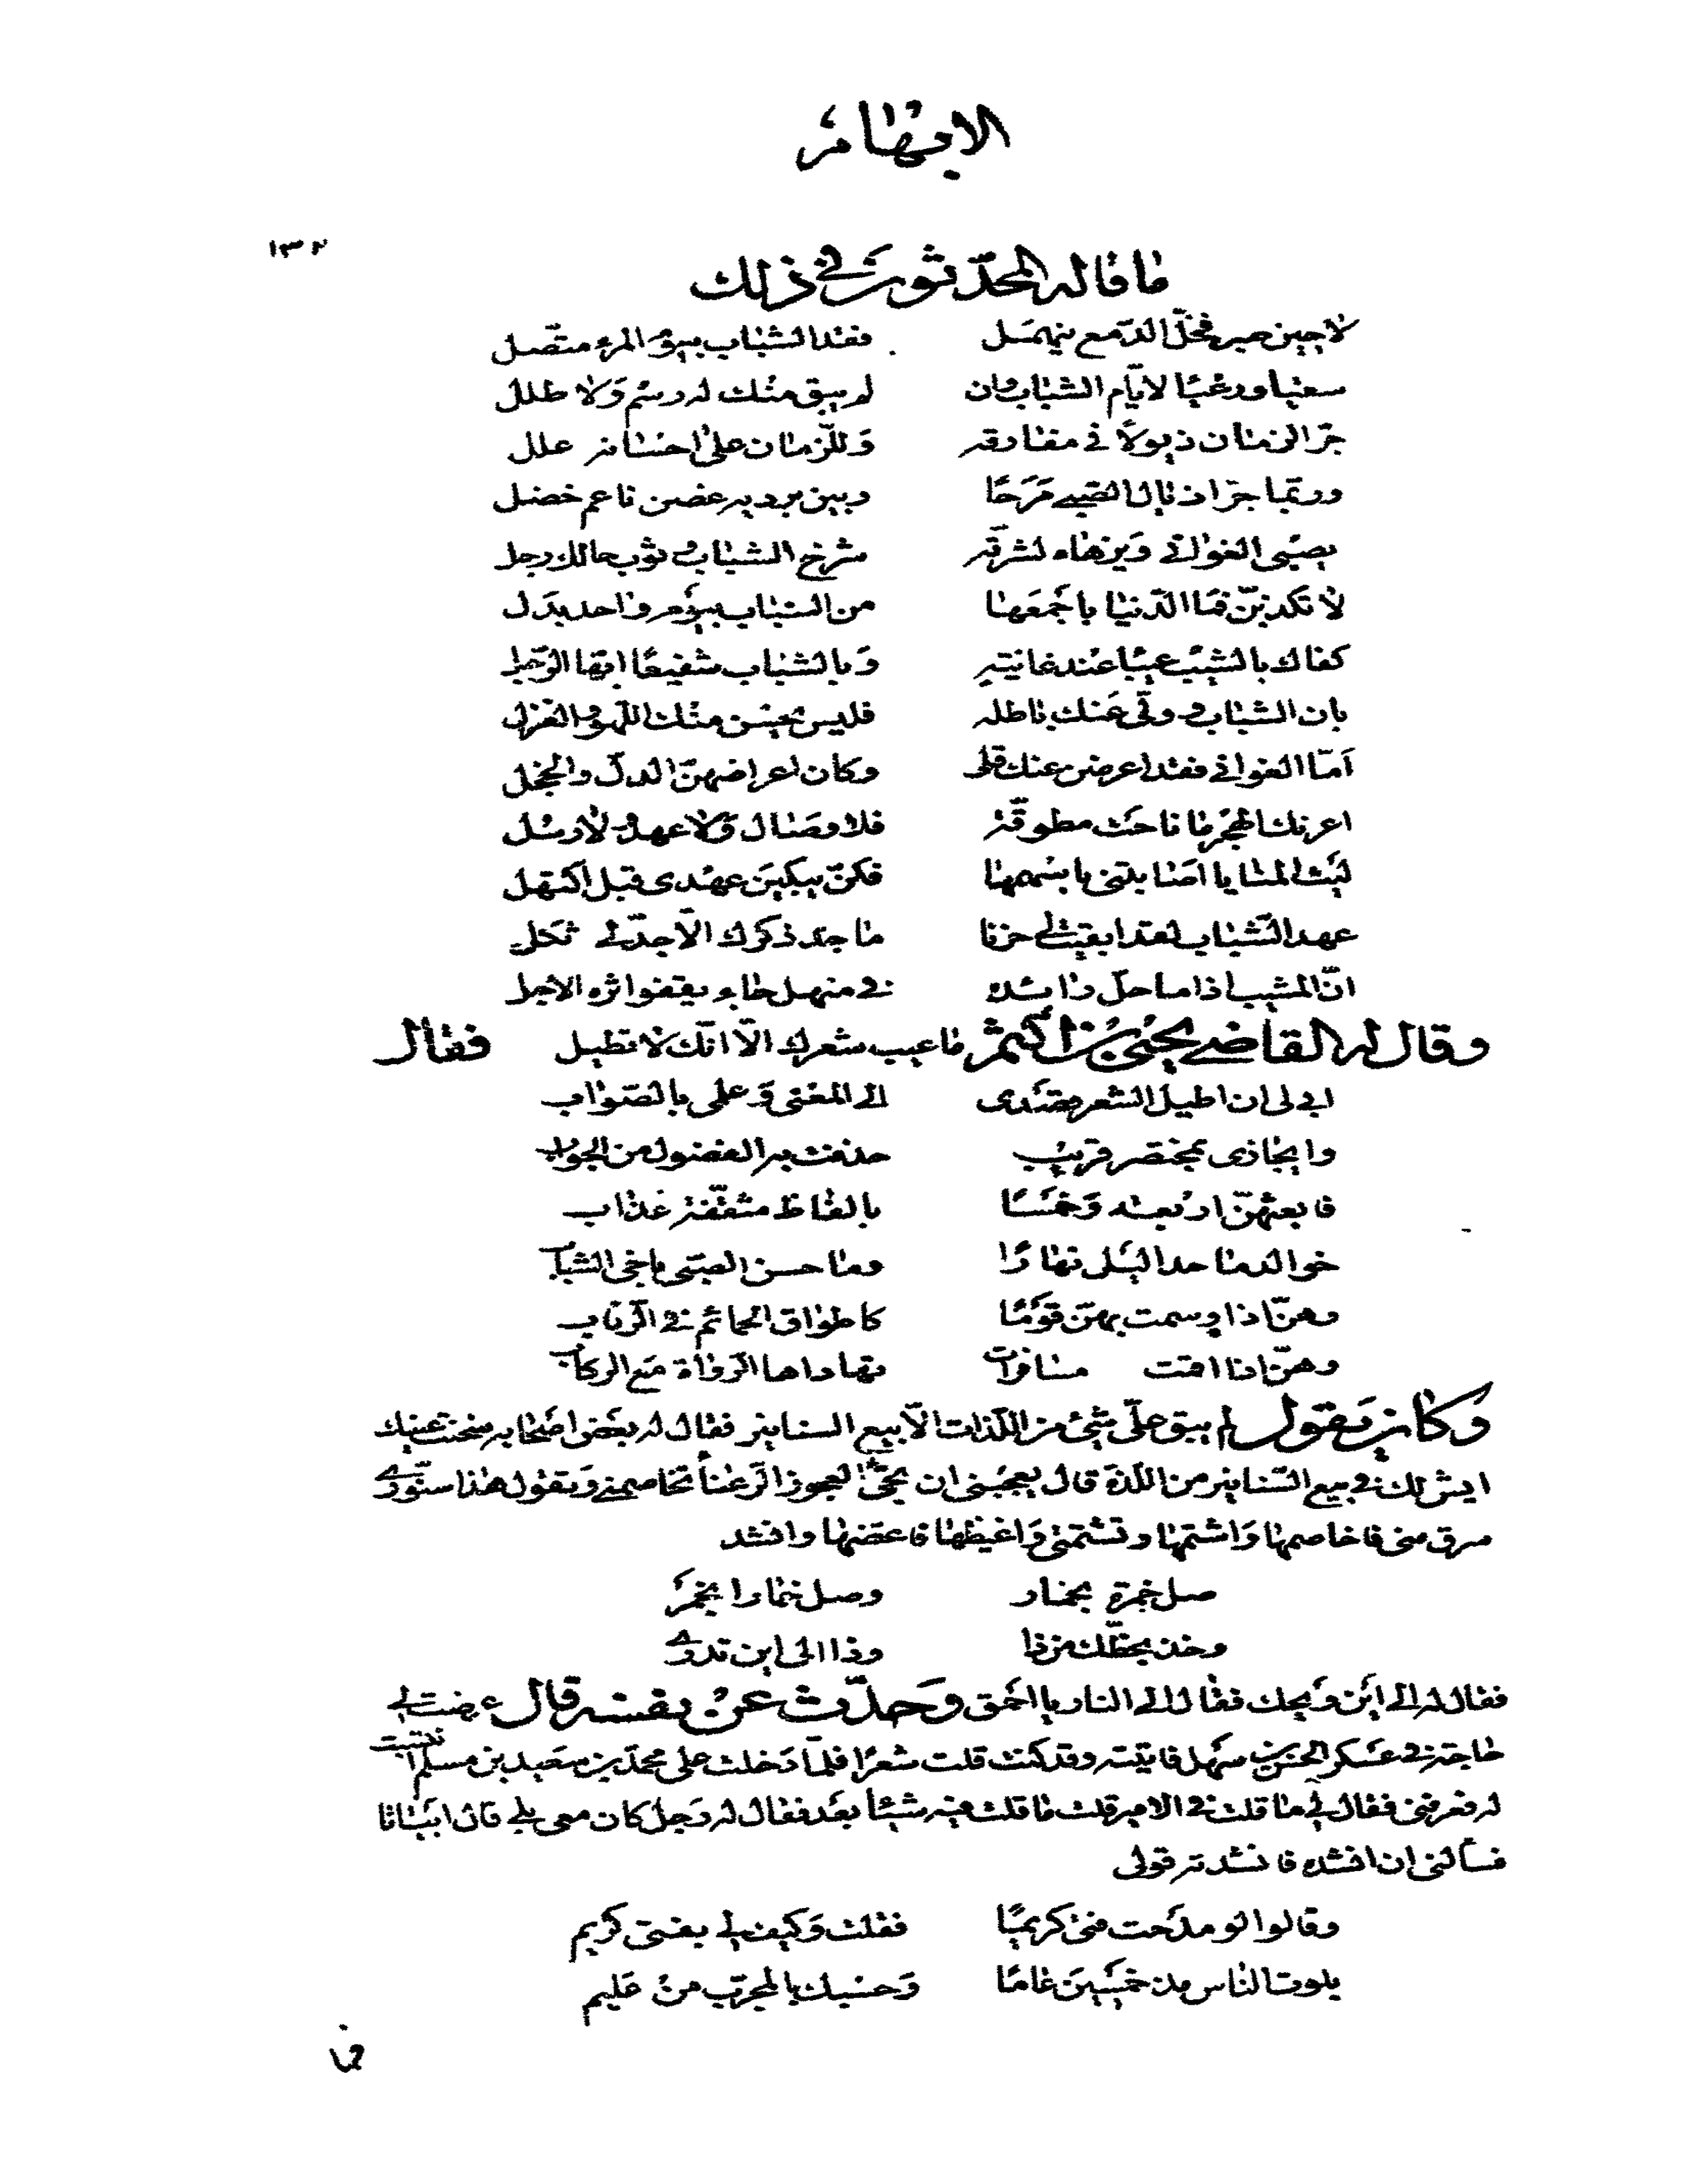 الابهام
١٣٢
ما قاله المحدثون في ذلك
لا حين صبر فخلّ الدّمع ينهمل فقد الشباب بيوم المرء متّصل
سقيا ورعيا لايّام الشباب وان لم يبق منك له رسم ولا طلل
جرّ الزمان ذيولاً في مفارقه وللزمان على احسانه علل
وربّما جرّ اذيال الصّبى مَرَحًا وبين برديه غصن ناعم خضل
يصبى الغوانى ويزهاه لشرّته شرخ الشباب وثوب حالك رجل
لا تكذبنّ فما الدّنيا باجمعها من الشباب بيوم واحد بدل
كفاك بالشيب عيبا عند غانية وبالشباب شفيعًا ايّها الرّجل
بان الشباب وولّى عنك باطله فليس يحسن منك اللهو والغزل
امّا الغوانى فقد اعرضن عنك قلى وكان اعراضهنّ الدلّ والخجل
اعرنك الهجر ما ناحت مطوقة فلا وصال ولا عهد ولا رسل
ليت المنايا اصابتنى باسهمها فكنّ يبكين عهدى قبل اكتهل
عهد الشباب لقد ابقيت لى حزنا ما جدّ ذكرك الاّ جدّ لى ثكل
انّ المشيب اذا ما حلّ رائده في منهل جاء يقفو اثره الاجل
وقال له القاضى يحيى بن اكثم ما عيب شعرك الاّ انّك لا تطيل فقال
ابى لى ان اطيل الشعر قصدى الى المعنى وعلمى بالصّواب
وايجازى بمختصر قريب حذفت به الفضول من الجواب
فابعثهنّ اربعة وخمسًا بالفاظ مثقّفة عذاب
خوالد ما حدا الليل نهارًا وما حسن الصبى باخى الشباب
وهنّ اذا وسمت بهنّ قومًا كاطواق الحمائم في الرّقاب
وهنّ اذا اقمت مسافرات تهاداها الرّواة مع الركاب
وكان يقول لم يبق علىّ شيء من اللذات الاّ بيع السنانير فقال له بعض اصحابه سخنت عينك
ايش لك في بيع السّنانير من اللذة قال يعجبنى ان يجئ العجوز الرّعناء تخاصمنى وتقول هذا سنّورى
سرق منى فاخاصمها واشتمها وتشتمنى واغيظها فاعضها وانشد
صل خمرة بخمار وصل خمارا بخمر
وخذ بحظّك من ذا وذا الى اين تدرى
فقال له الى اين ويحك فقال الى النار يا احمق وحدّث عن نفسه قال عرضت لى
حاجة في عسكر الحسن بن سهل فاتيته وقد كنت قلت شعرًا فلمّا دخلت على محمّد بن سعيد بن مسلم انتسبت
له فعرفنى فقال لى ما قلت في الامير قلت ما قلت فيه شيئا بعد فقال له رجل كان معى بلى قال ابياتا
فسألنى ان انشده فانشدته قولى
وقالوا لو مدحت فتى كريمًا فقلت وكيف لى بفتى كريم
بلوت الناس مذ خمسين عامًا وحسبك بالمجرّب من عليم
فما